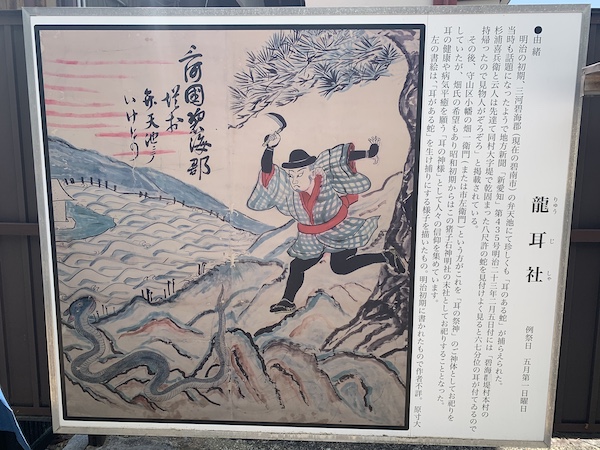 龍耳社
りゅう じ しゃ
例祭日 五月第一日曜日
●由緒
明治の初期、三河碧海郡(現在の碧南市)の弁天池にて珍しくも「耳のある蛇」が捕らえられた。
当時も話題になったようで地方新聞「新愛知」第４３５号明治二十三年二月五日付には 碧海郡堤村本村の
杉浦喜兵衛と云人は先達て同村大字堤で乾固まった八尺許の蛇を見付けよく見ると六七分位の耳が付てゐるので
持帰ったので見物人がぞろぞろ」と掲載されている。
その後、守山区小幡の畑一衛門(または市左衛門)という方がこれを「耳の祭神」のご神体としてお祀りを
していたが、畑氏の希望もあり昭和初期からはこの龍子石神明社の末社としてお祀りすることとなった。
耳の健康や病気平癒を願う「耳の神様」として人々の信仰を集めています。
左の書絵は、「耳がある蛇」を生け捕りにする様子を描いたもの。明治初期に書かれたもので作者不詳。原寸大
三河國碧海郡
堤村
弁天池ゟ
いけどりの